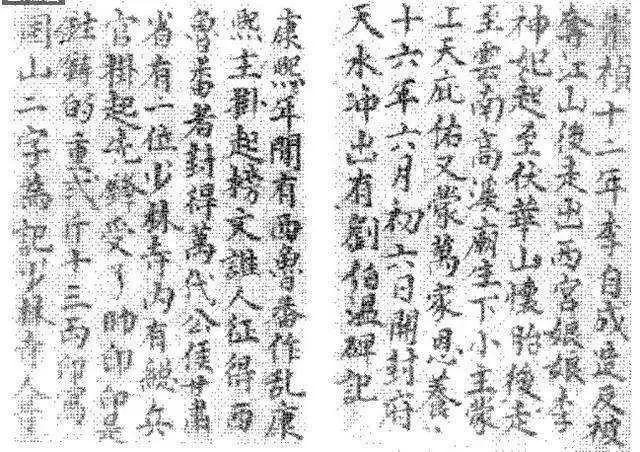 禎十二年李自成造反被
奪江山後走出西宮娘娘李
神妃起至伏華山懷胎後走
至雲南高溪廟生下小主蒙
上天庇佑又蒙萬家恩養
十六年六月初六日開封府
天水沖出有劉伯温碑記
康熙年間有西魯番作乱康
熙主掛起榜文誰人征得西
魯番者封得萬代公侯甘肅
省有一位少林寺內有總兵
官掛起先鋒受了帥印印是
鉄鑄的重弍斤十三両印為
山二字為記少林寺